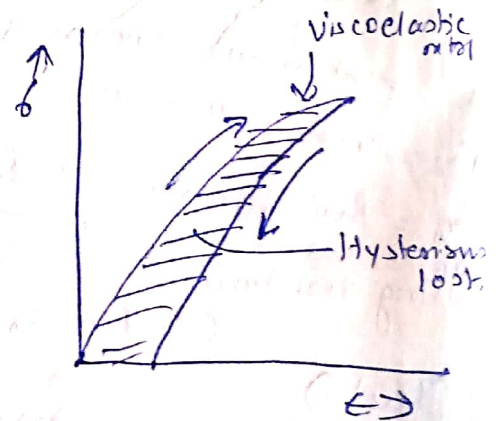 Viscoelastic
matl
σ
Hysterisis
lost.
ε